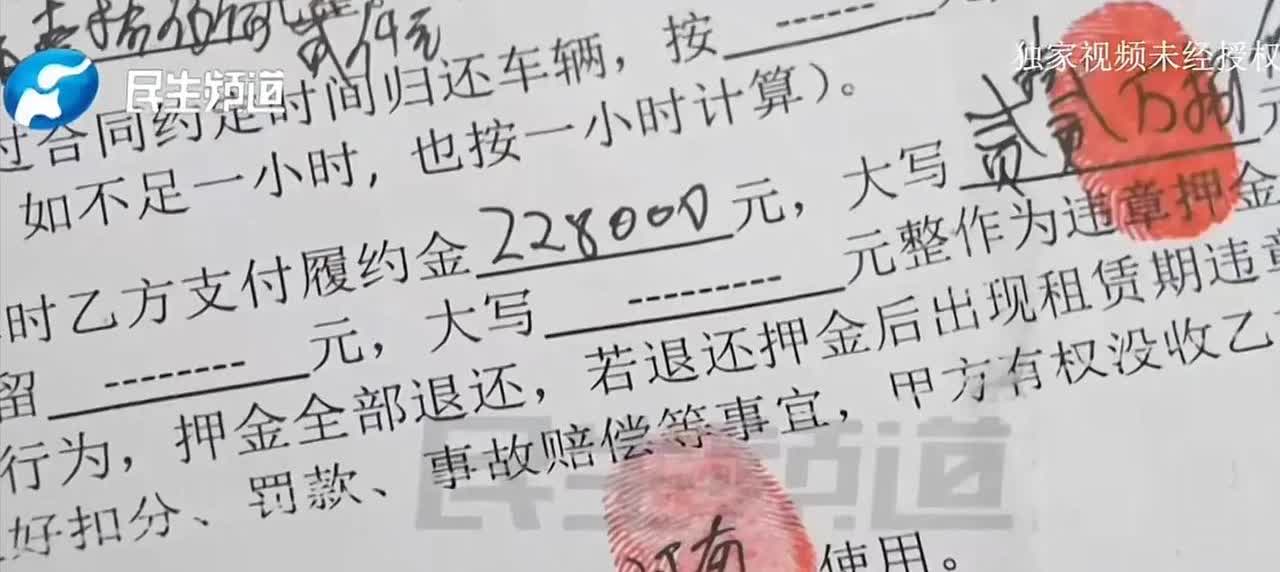 民生频道
独家视频未经授权
贰仟元
过合同约定时间归还车辆，按 --------
如不足一小时，也按一小时计算）。
时乙方支付履约金 228000 元，大写 贰贰万捌 元
留 --------- 元，大写 --------- 元整作为违章押金
行为，押金全部退还，若退还押金后出现租赁期违章
好扣分、罚款、事故赔偿等事宜，甲方有权没收乙
河南 使用。
民生频道